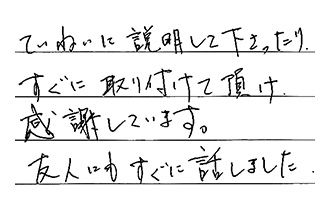 ていねいに説明して下さったり、
すぐに取り付けて頂け、
感謝しています。
友人にもすぐに話しました。